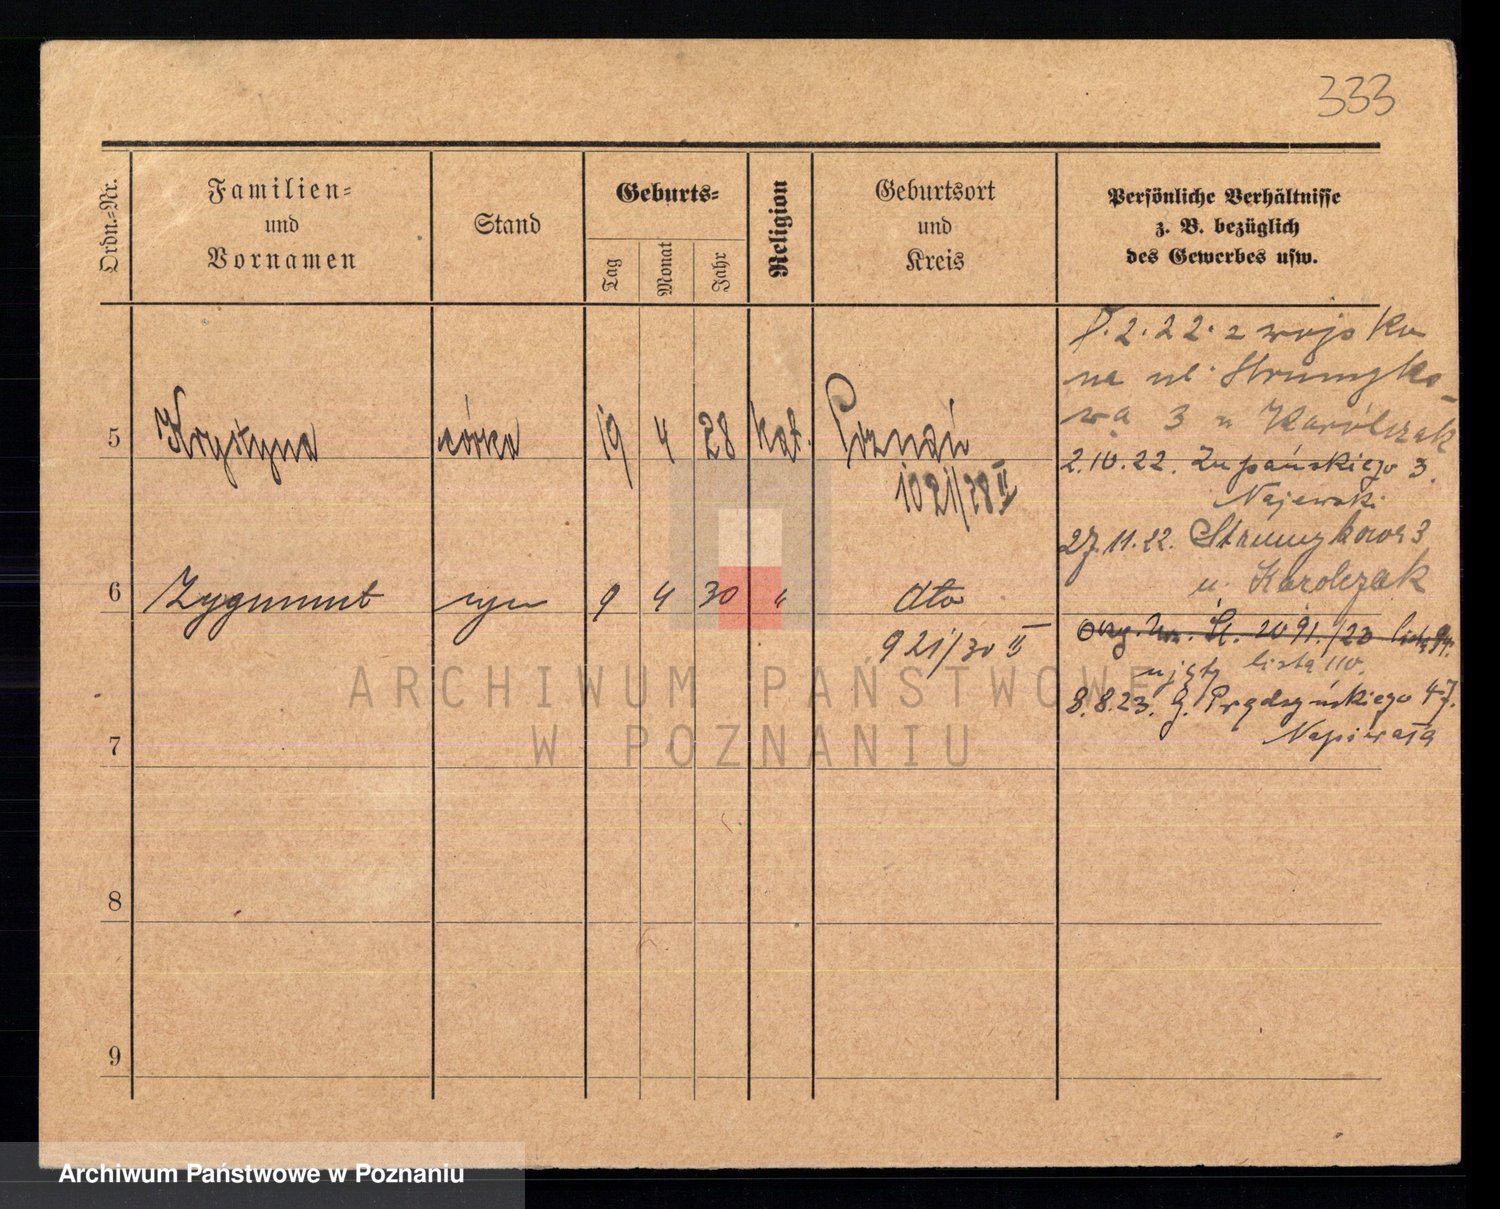 333
Ordn.=Nr.
Familien=
und
Vornamen
Stand
Geburts=
Tag
Monat
Jahr
Religion
Geburtsort
und
Kreis
Persönliche Verhältnisse
z. B. bezüglich
des Gewerbes usw.
2.22. z wojska
na ul. Strumyko-
wa 3 u Karolczak
5 Krystyna córka 19 4 28 kat. Poznań
1021/28 II
2.10.22. Zupańskiego 3.
Najewski
27.11.22. Strumykowa 3
u Karolczak
6 Zygmunt syn 9 4 30 " dto
921/30 II
2091./23
ujęty lista 110.
8.8.23. G. Prądzyńskiego 47.
Napierała
7
8
9
ARCHIWUM PAŃSTWOWE
W POZNANIU
Archiwum Państwowe w Poznaniu